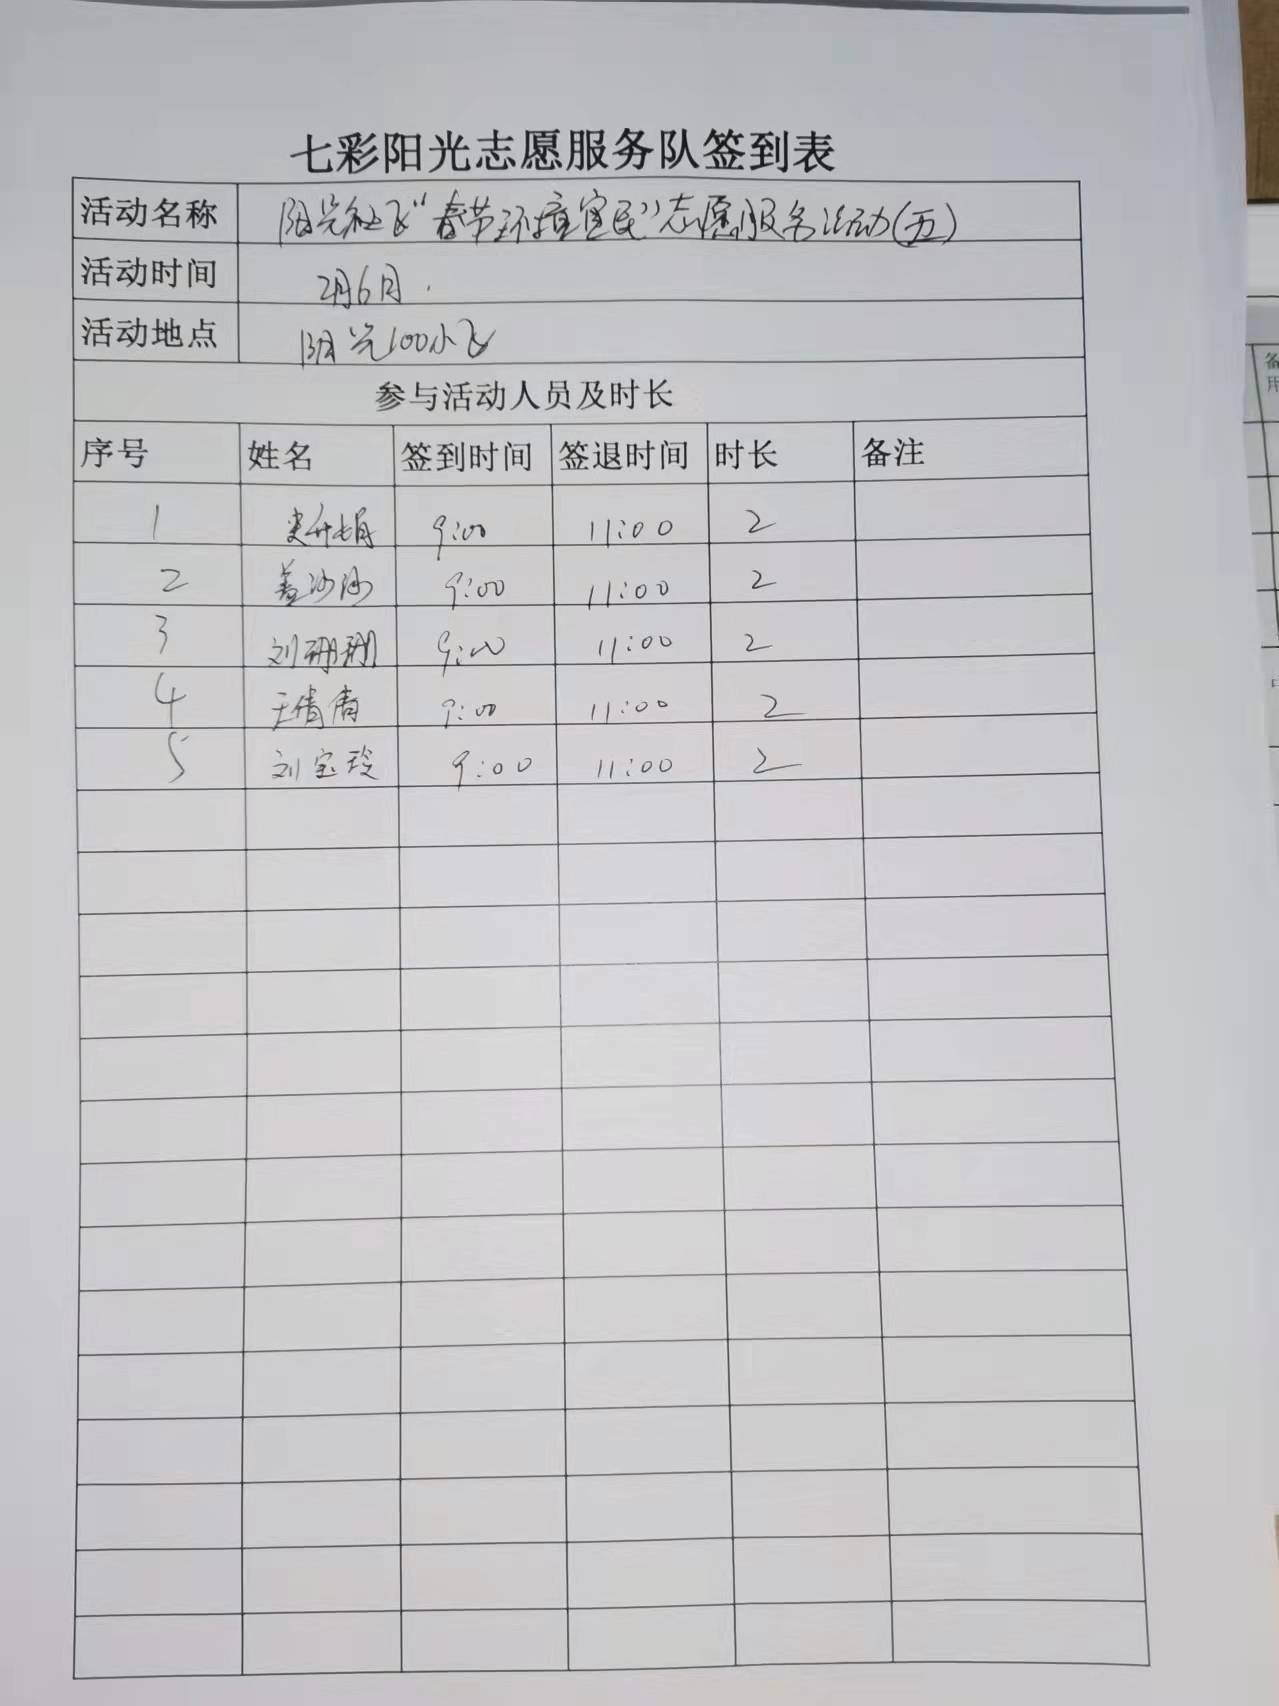 七彩阳光志愿服务队签到表
活动名称 阳光社区"春节环境宣民"志愿服务活动(五)
活动时间 2月6日.
活动地点 阳光100小区
参与活动人员及时长
序号 姓名 签到时间 签退时间 时长 备注
1 9:00 11:00 2
2 盖沙沙 9:00 11:00 2
3 刘珊珊 9:00 11:00 2
4 王倩倩 9:00 11:00 2
5 刘宝玲 9:00 11:00 2
备
用